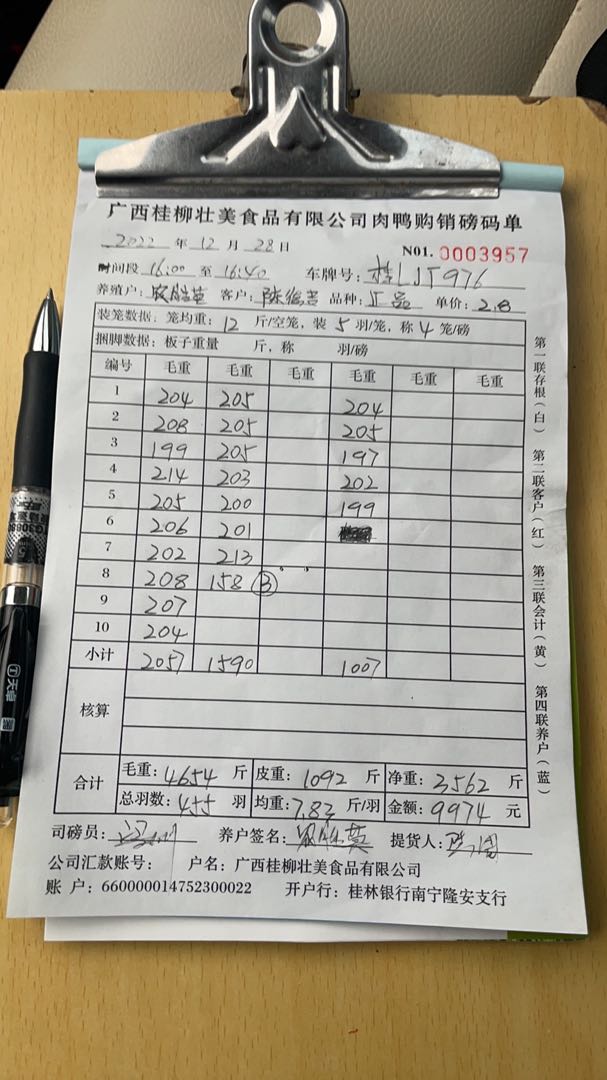 广西桂柳壮美食品有限公司肉鸭购销磅码单
2022 年 12 月 28 日 N01. 0003957
时间段 16:00 至 16:40 车牌号: 桂LJ5976
养殖户: 客户: 品种: 正品 单价: 2.8
装笼数据: 笼均重: 12 斤/空笼, 装 5 羽/笼, 称 4 笼/磅
捆脚数据: 板子重量 斤, 称 羽/磅
编号 毛重 毛重 毛重 毛重 毛重 毛重
1 204 205 204
2 208 205 205
3 199 205 197
4 214 203 202
5 205 200 199
6 206 201
7 202 213
8 208 158 ③
9 207
10 204
小计 2057 1590 1007
核算
合计 毛重: 4654 斤 皮重: 1092 斤 净重: 3562 斤
总羽数: 455 羽 均重: 7.83 斤/羽 金额: 9974 元
司磅员: 养户签名: 提货人:
公司汇款账号: 户名: 广西桂柳壮美食品有限公司
账 户: 660000014752300022 开户行: 桂林银行南宁隆安支行
第一联存根(白) 第二联客户(红) 第三联会计(黄) 第四联养户(蓝)
天卓